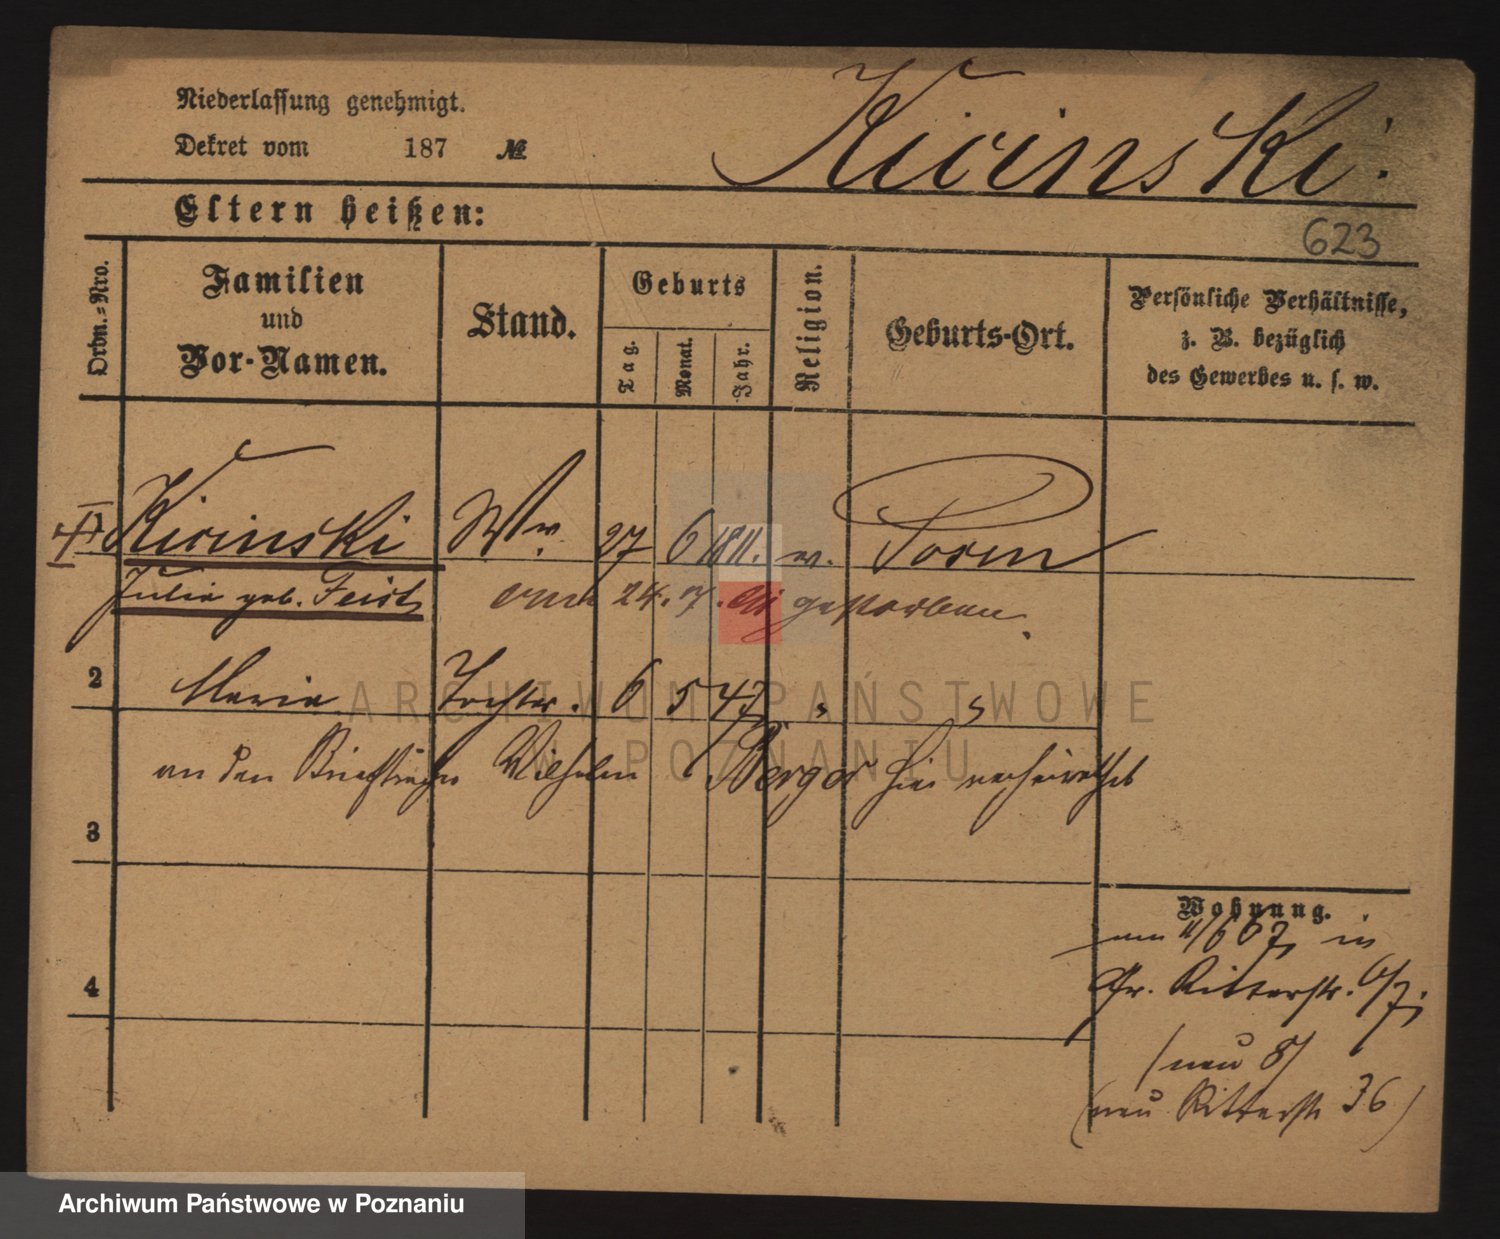 Niederlassung genehmigt.
Dekret vom 187 №
Kicinski.
Eltern heißen:
623
Ordn.-Nro.
Familien
und
Vor-Namen.
Stand.
Geburts
Tag.
Monat.
Jahr.
Religion.
Geburts-Ort.
Persönliche Verhältnisse,
z. B. bezüglich
des Gewerbes u. s. w.
Kicinski Ww. 27 6 1811. Posen
Julia geb. Feist 24. 7. gestorben.
2 Maria Tochter. 6 5 47
an den Briefträger Wilhelm Berger hier verheirathet
3
4
Wohnung.
in
Gr. Ritterstr. 6/7.
(neu 8)
(neu Ritterstr 36)
ARCHIWUM PAŃSTWOWE
W POZNANIU
Archiwum Państwowe w Poznaniu